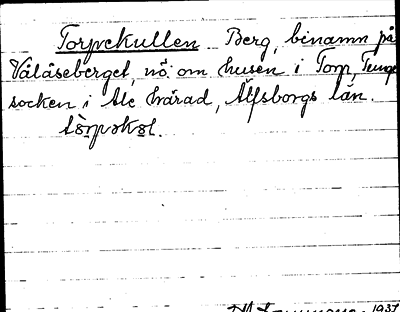 Torpekullen Berg, binamn på
Vålåseberget, nö. om husen i Torp, Tunge
socken i Ale härad, Älfsborgs län.
1937